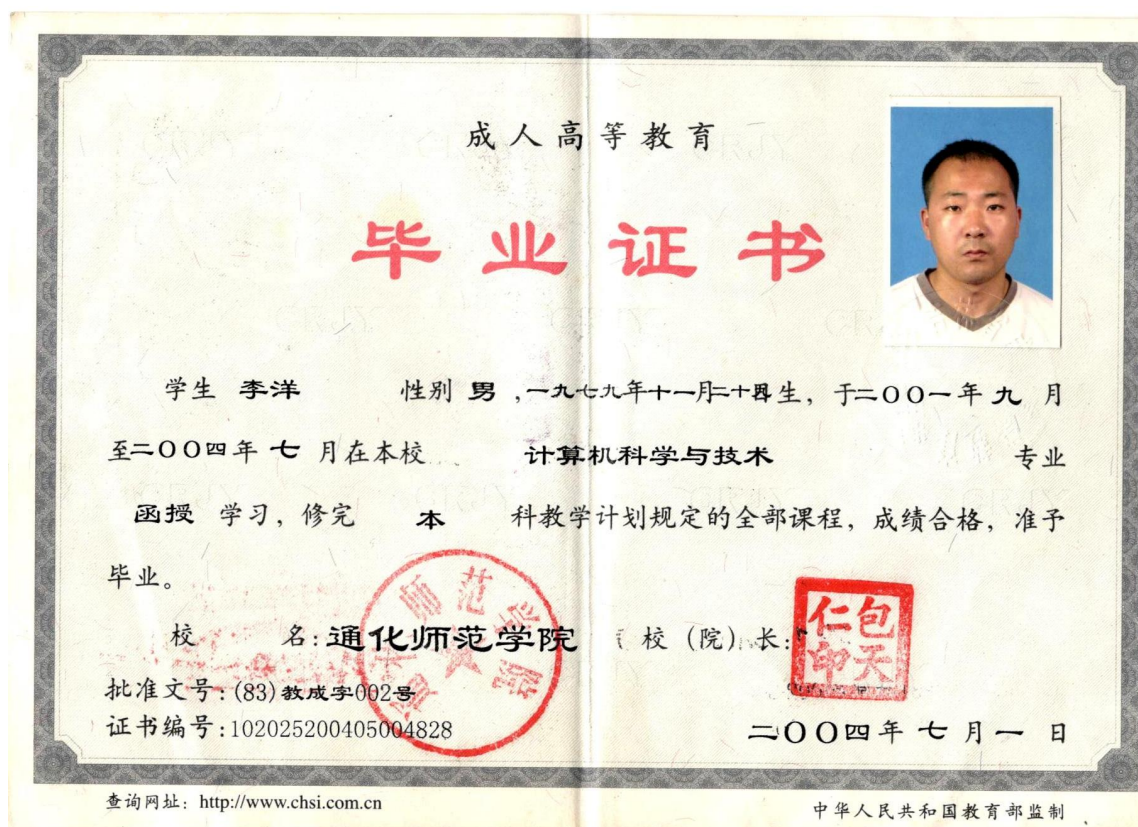 成人高等教育
毕业证书
学生 李洋 性别 男 ,一九七九年十一月二十四生，于二〇〇一年 九 月
至二〇〇四年 七 月在本校 计算机科学与技术 专业
函授 学习，修完 本 科教学计划规定的全部课程，成绩合格，准予
毕业。
校 名:通化师范学院 校（院）长:
包天仁印
通化师范学院
批准文号:(83)教成字002号
证书编号:102025200405004828
二〇〇四年 七 月 一 日
查询网址：http://www.chsi.com.cn
中华人民共和国教育部监制